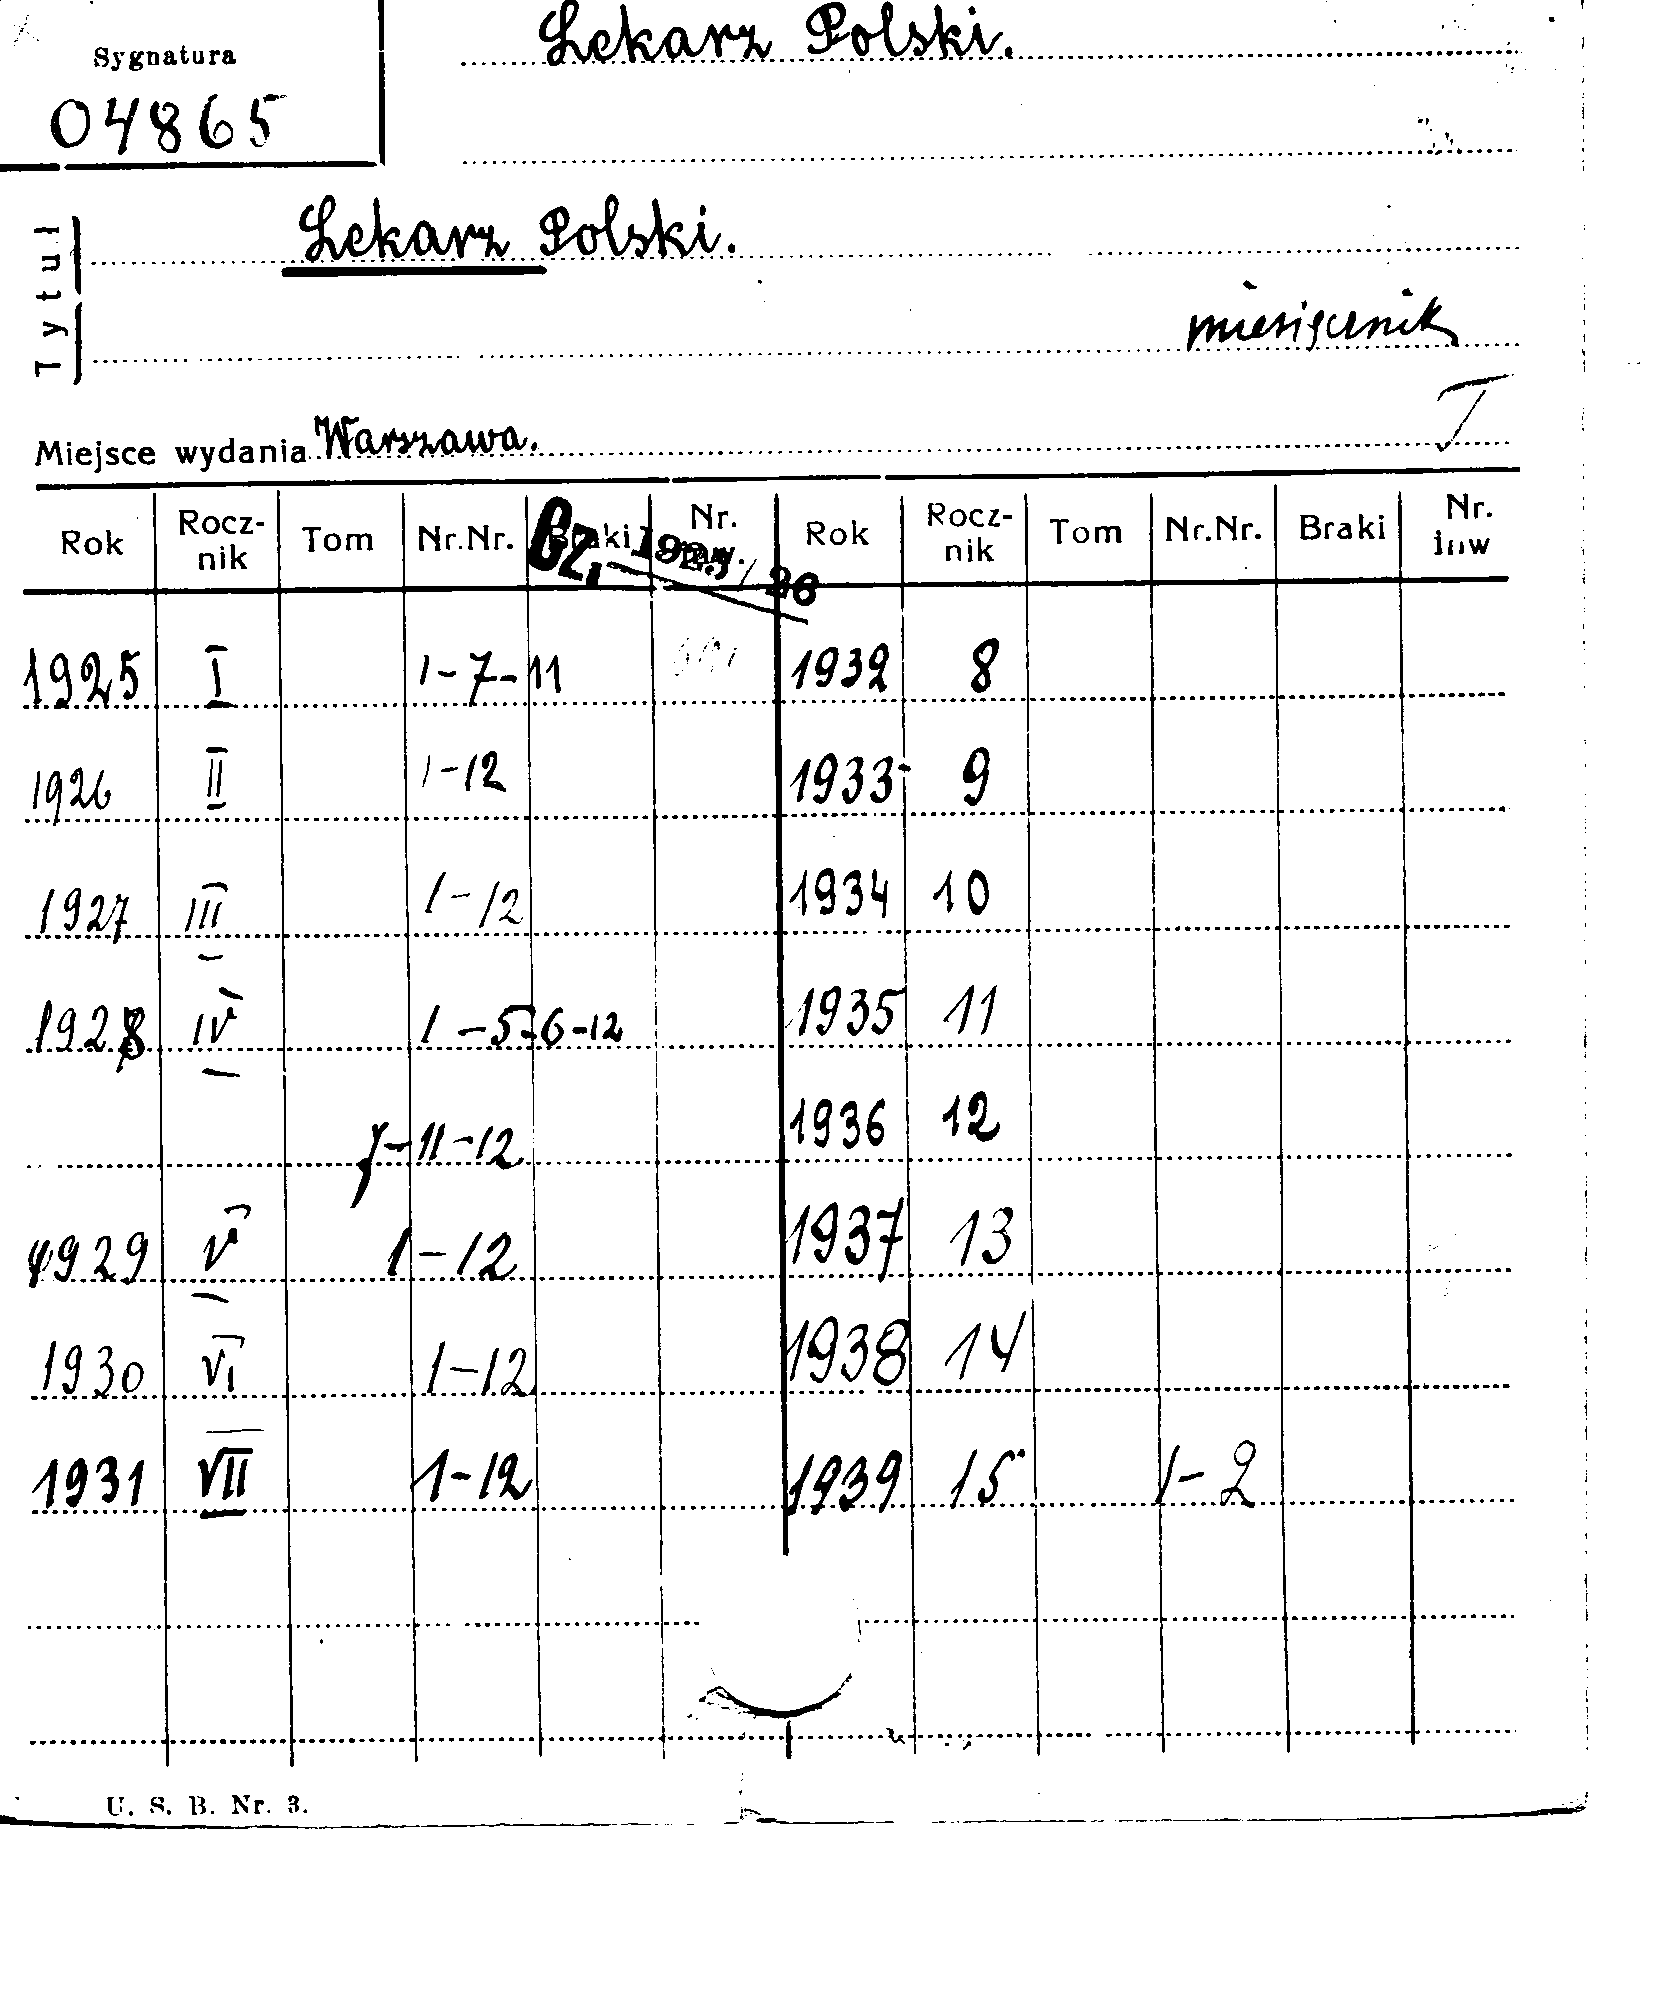 Lekarz Polski.
Sygnatura
04865
Tytuł
Lekarz Polski.
miesięcznik
I
Miejsce wydania Warszawa.
Rok Rocz-nik Tom Nr.Nr. Braki Nr. inw. Rok Rocz-nik Tom Nr.Nr. Braki Nr. inw
Cz.
1925 I 1-7-11 1932 8
1926 II 1-12 1933 9
1927 III 1-12 1934 10
1928 IV 1-5-6-12 1935 11
7-11-12 1936 12
1929 V 1-12 1937 13
1930 VI 1-12 1938 14
1931 VII 1-12 1939 15 1-2
U. S. B. Nr. 3.